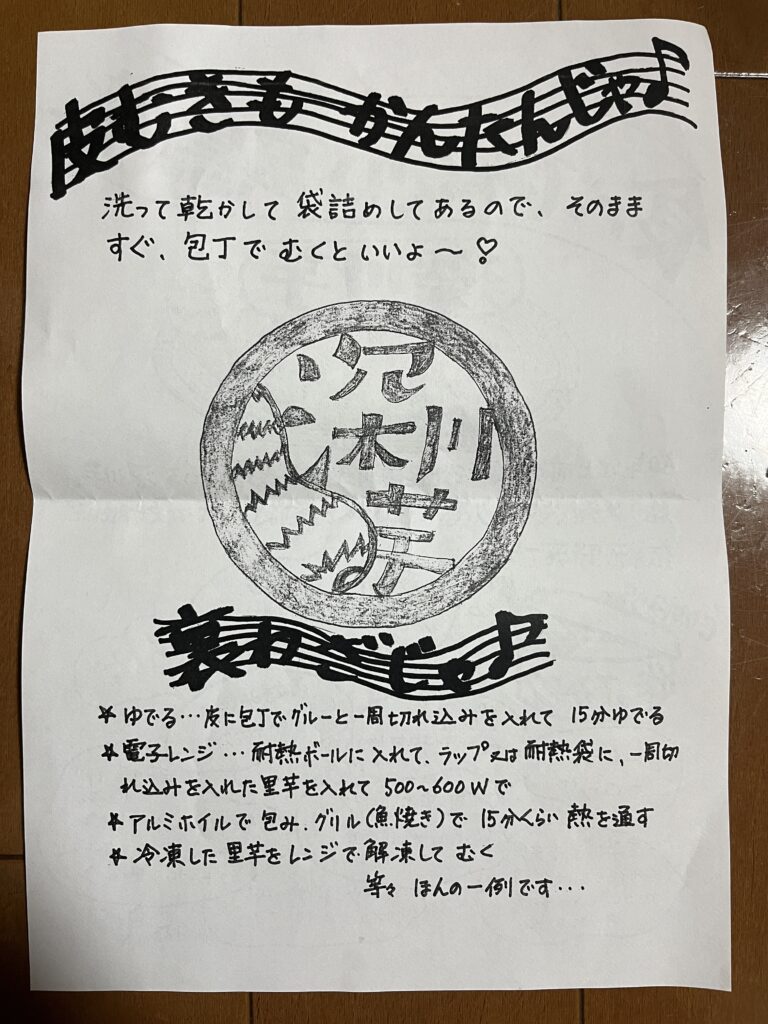 皮むきも かんたんじゃ♪
洗って乾かして 袋詰めしてあるので、そのまま
すぐ、包丁で むくといいよ〜♡
深川芋
裏わざじゃ♪
☆ ゆでる…皮に包丁でグルーと一周切れ込みを入れて 15分ゆでる
☆ 電子レンジ…耐熱ボールに入れて、ラップ又は耐熱袋に、一周切
れ込みを入れた里芋を入れて 500〜600Wで
☆ アルミホイルで包み、グリル(魚焼き)で 15分くらい 熱を通す
☆ 冷凍した里芋をレンジで解凍して むく
等々 ほんの一例です…